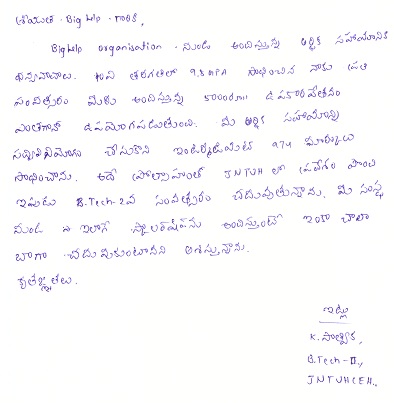 శ్రీయుత - Big help - గారికి,
Bighelp organisation - నుండి అందిస్తున్న ఆర్థిక సహాయానికి
ధన్యవాదాలు. 10వ తరగతిలో 9.8 GPA సాధించిన నాకు ప్రతి
సంవత్సరం మీరు అందిస్తున్న 50000rs/- ఉపకారవేతనం
ఎంతగానో ఉపయోగపడుతుంది. మీ ఆర్థిక సహాయాన్ని
సద్వినియోగం చేసుకొని ఇంటర్మీడియట్ 974 మార్కులు
సాధించాను. అదే ప్రోత్సాహంతో JNTUH లో ప్రవేశం పొంది
ఇపుడు B.Tech-2వ సంవత్సరం చదువుతున్నాను. మీ సంస్థ
నుండి ఇలాగే స్కాలర్‌షిప్‌ను అందిస్తుంటే ఇంకా చాలా
బాగా చదువుకుంటానని ఆశిస్తున్నాను.
కృతజ్ఞతలు.
ఇట్లు
K. సాత్విక,
B.Tech-II,
JNTUHCEH.